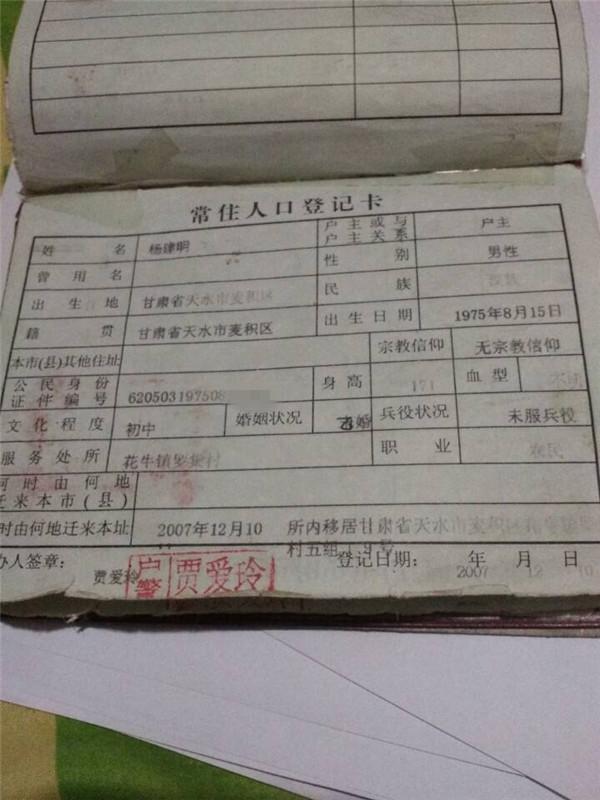 常住人口登记卡
姓名 杨建明 户主或与户主关系 户主
曾用名 性别 男性
出生地 甘肃省天水市麦积区 民族 汉族
籍贯 甘肃省天水市麦积区 出生日期 1975年8月15日
本市(县)其他住址 宗教信仰 无宗教信仰
公民身份证件编号 620503197508 身高 171 血型
文化程度 初中 婚姻状况 兵役状况 未服兵役
服务处所 花牛镇 村 职业 农民
何时由何地迁来本市(县)
时由何地迁来本址 2007年12月10 所内移居甘肃省天水市麦积区花牛镇
村五组 9号
办人签章: 登记日期: 年 月 日
贾爱玲 户警 贾爱玲 2007 12 10